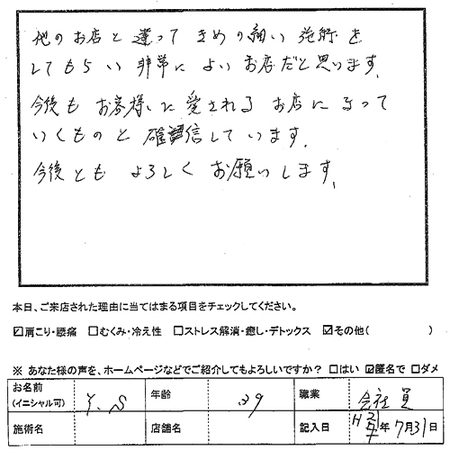 他のお店と違って きめの細い 施術を
してもらい 非常に よいお店だと思います。
今後も お客様に愛される お店になって
いくものと 確信しています。
今後とも よろしく お願いします。
本日、ご来店された理由に当てはまる項目をチェックしてください。
☑肩こり・腰痛 □むくみ・冷え性 □ストレス解消・癒し・デトックス ☑その他( )
※ あなた様の声を、ホームページなどでご紹介してもよろしいですか? □はい ☑匿名で □ダメ
お名前 (イニシャル可) Y.S 年齢 39 職業 会社員
施術名 店舗名 記入日 H 年 7月31日